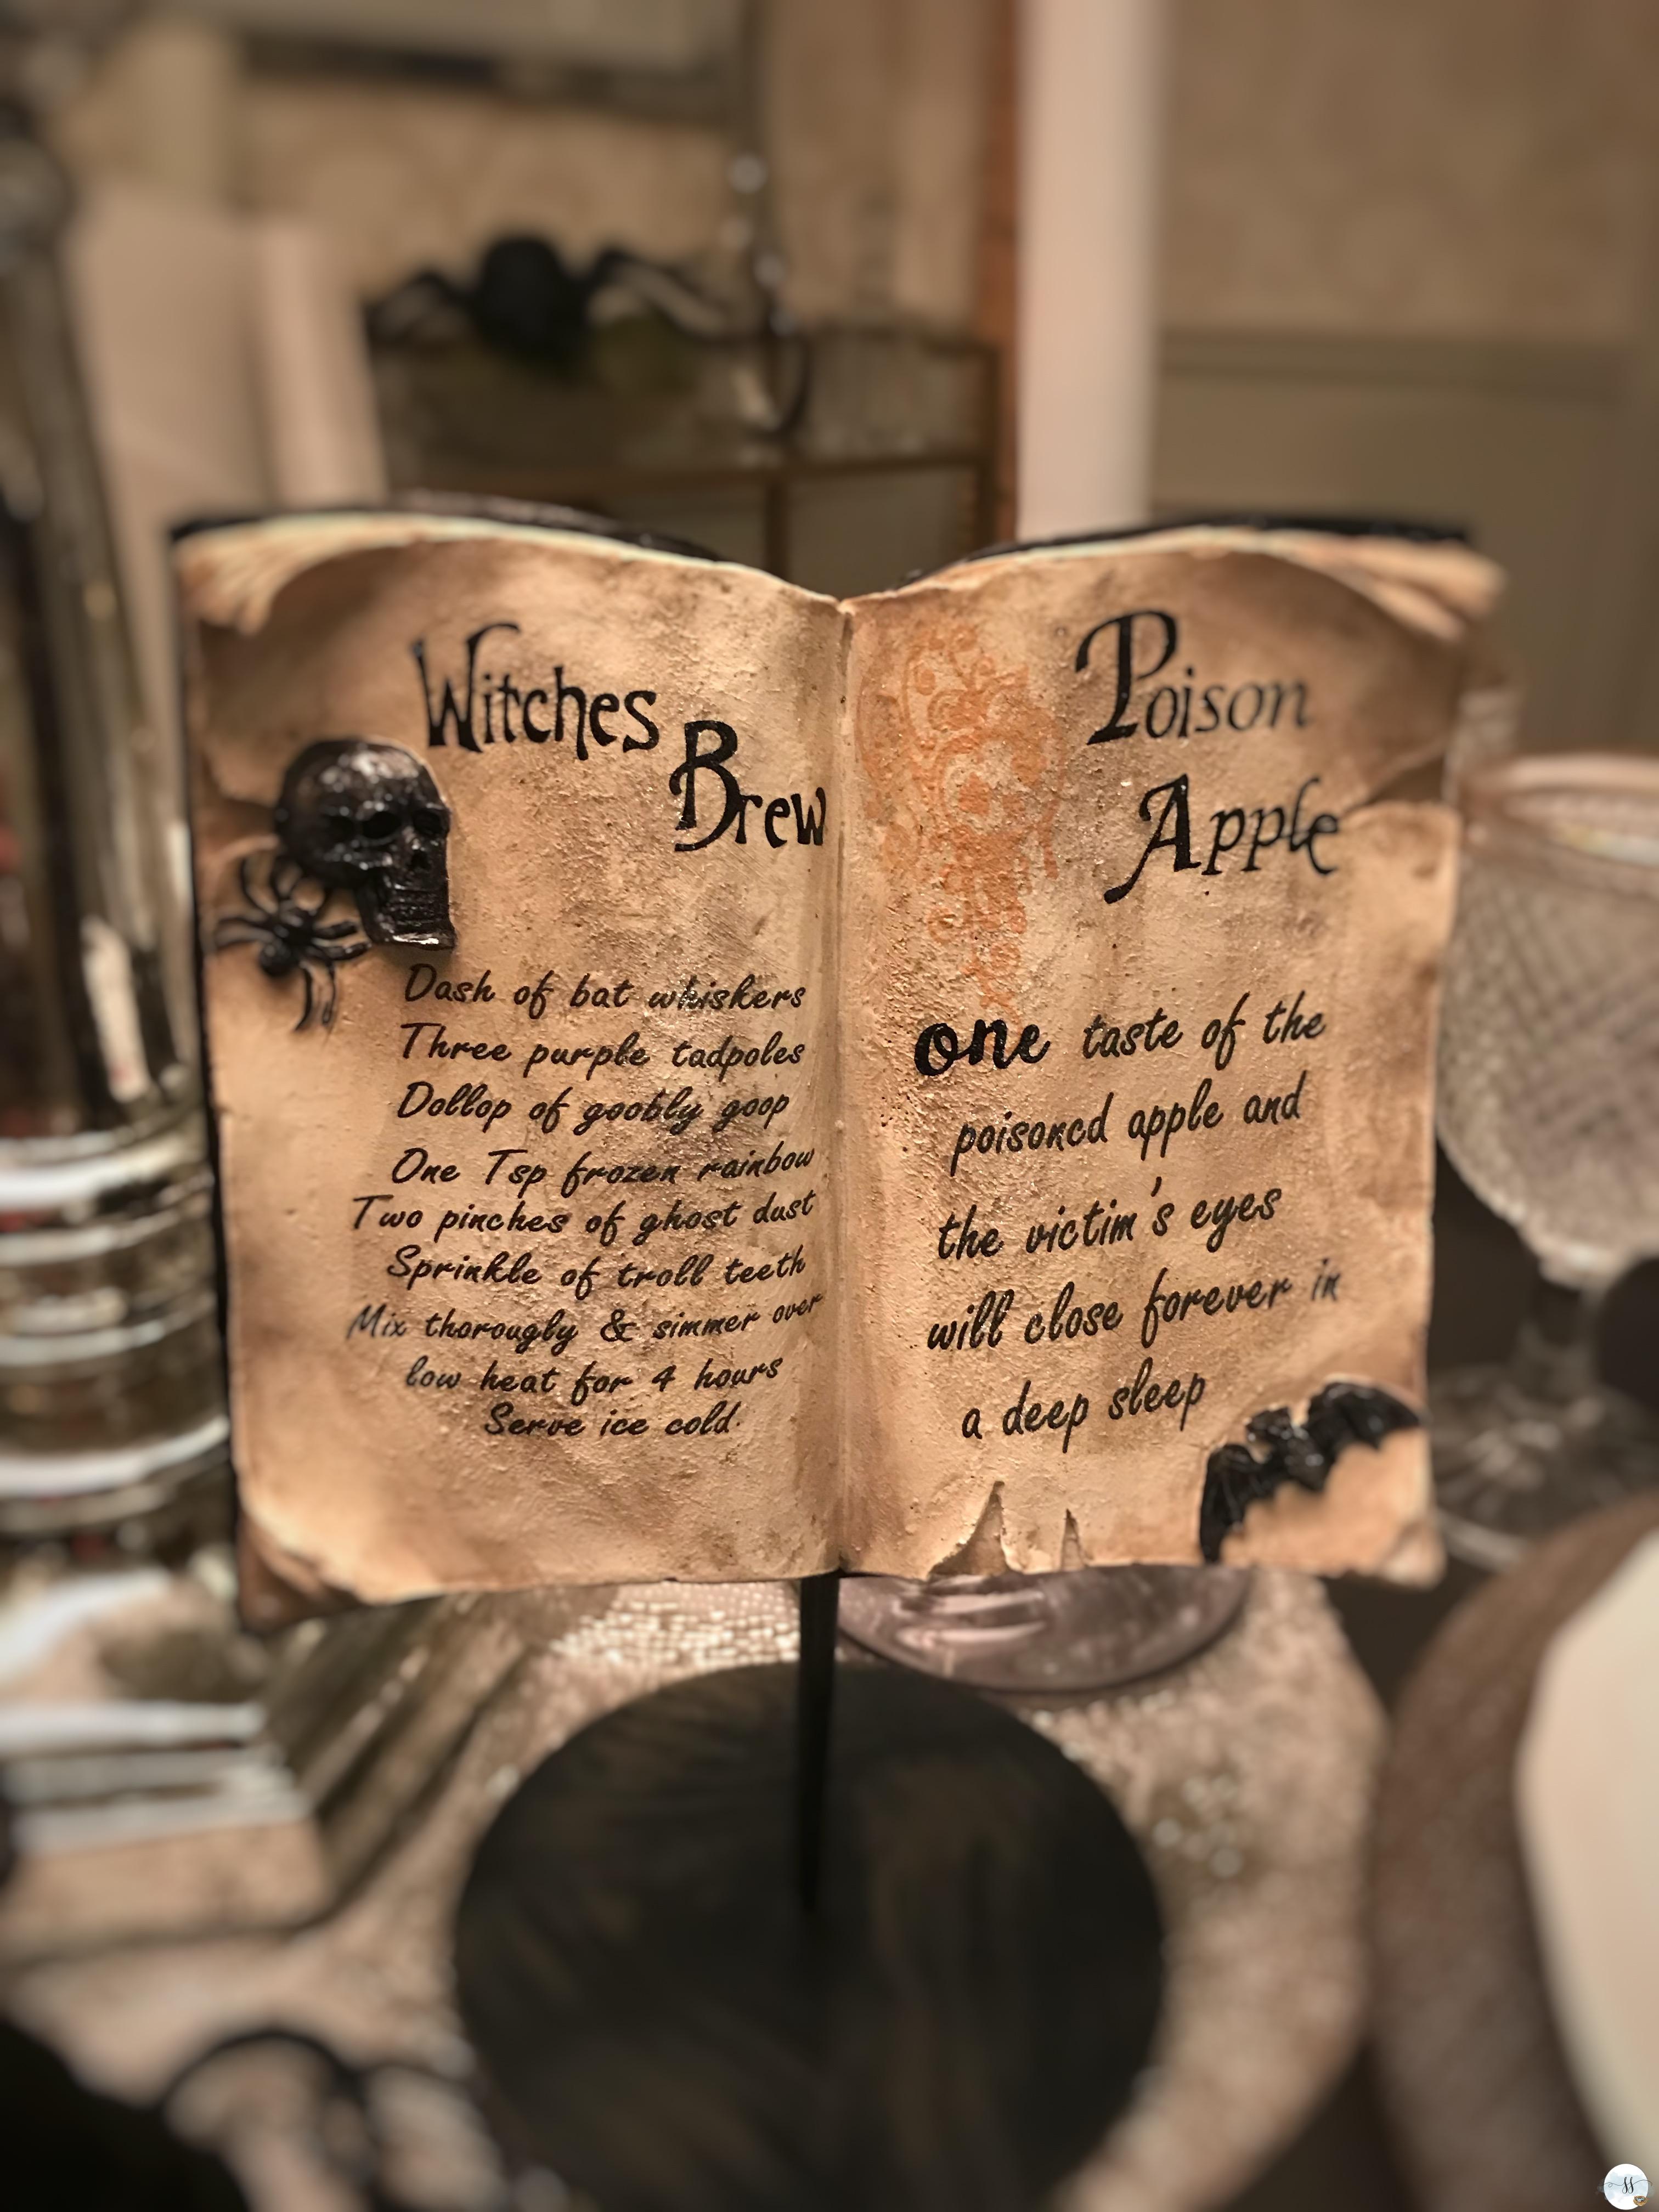 Witches
Brew
Dash of bat whiskers
Three purple tadpoles
Dollop of goobly goop
One Tsp frozen rainbow
Two pinches of ghost dust
Sprinkle of troll teeth
Mix thorougly & simmer over
low heat for 4 hours
Serve ice cold.
Poison
Apple
one taste of the
poisoned apple and
the victim's eyes
will close forever in
a deep sleep